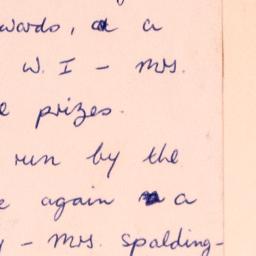 wards, at a
W. I - Mrs.
prizes.
run by the
again a
- Mrs. Spalding-